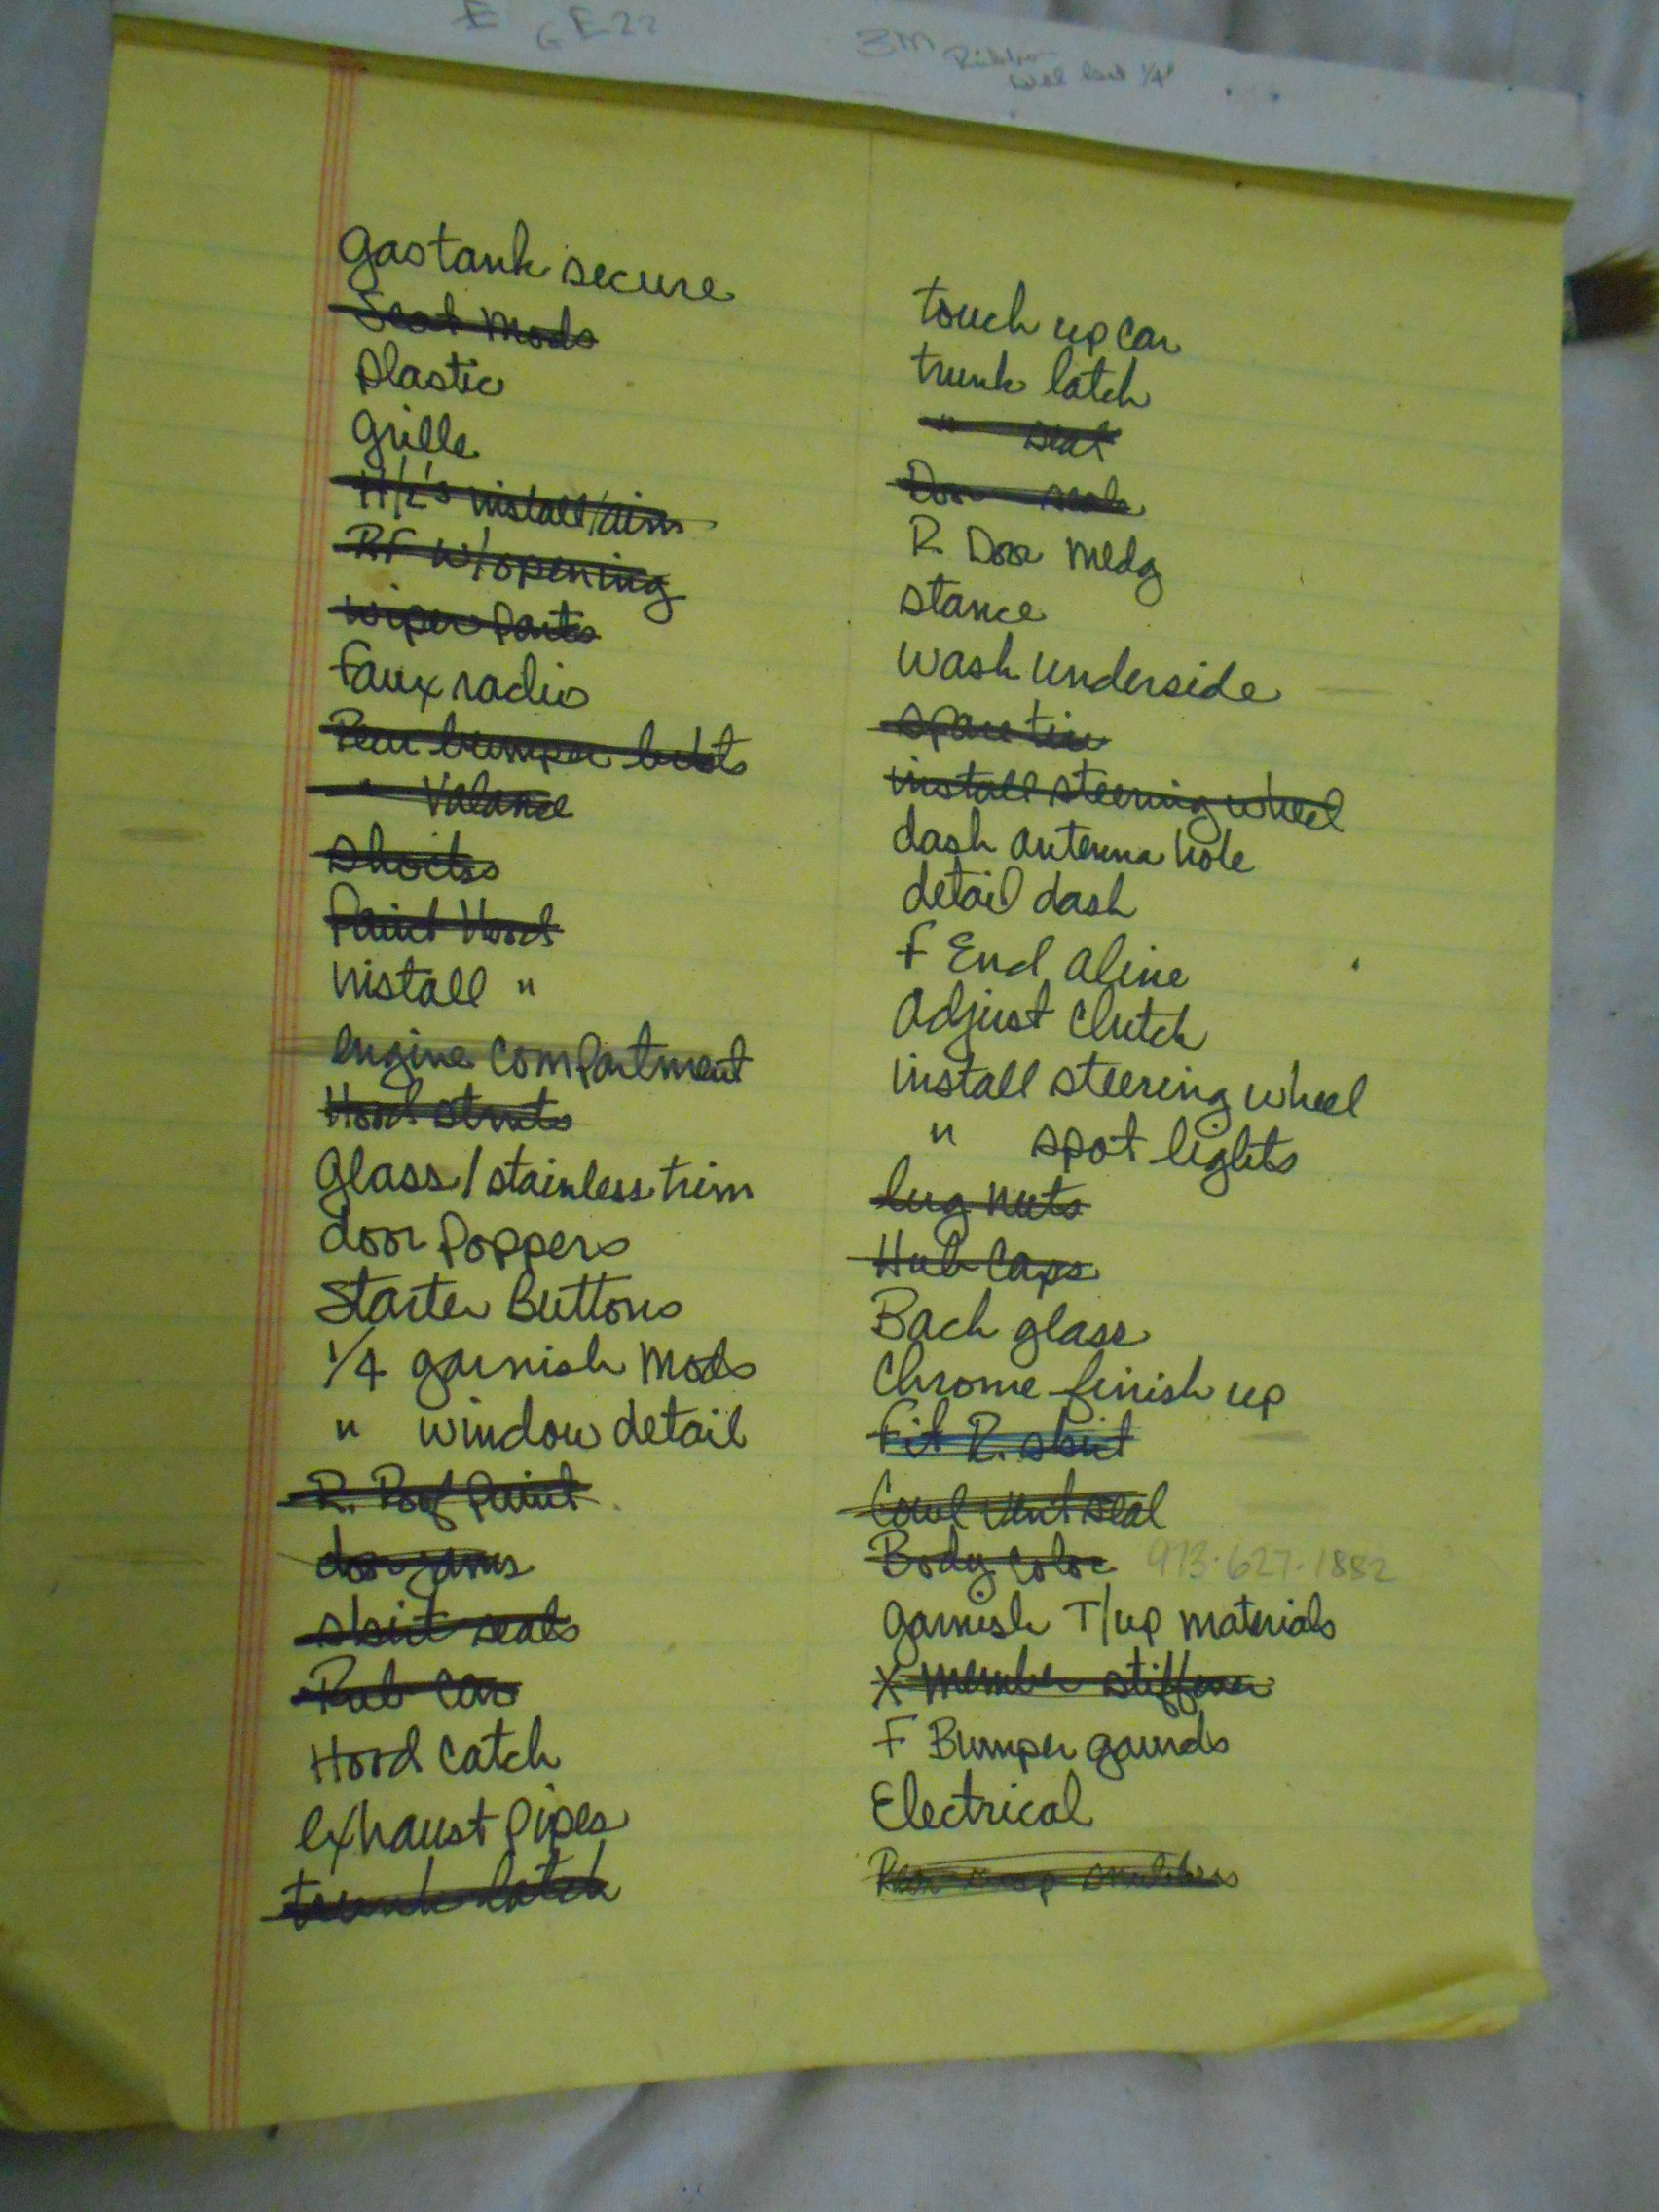 E GE22
3M Rubber
seal last 1/4"
gas tank secure
Seat Mods
plastic
grille
H/L's install/aim
RF w/opening
wiper parts
faux radio
Rear bumper bolts
" Valance
shocks
Paint Hood
install "
engine compartment
Hood struts
glass/stainless trim
door poppers
Starter Buttons
1/4 garnish mods
" window detail
R. Roof paint
door jams
skirt seals
Rub car
Hood catch
exhaust pipes
trunk latch
touch up car
trunk latch
" seal
Door seals
R Door mldg
stance
wash underside
spare tire
install steering wheel
dash antenna hole
detail dash
F End aline
Adjust clutch
install steering wheel
" spot lights
lug nuts
Hub Caps
Back glass
Chrome finish up
fit R. skirt
Cowl vent seal
Body color 913.627.1882
garnish T/up materials
X member stiffener
F Bumper gaurds
Electrical
Rear